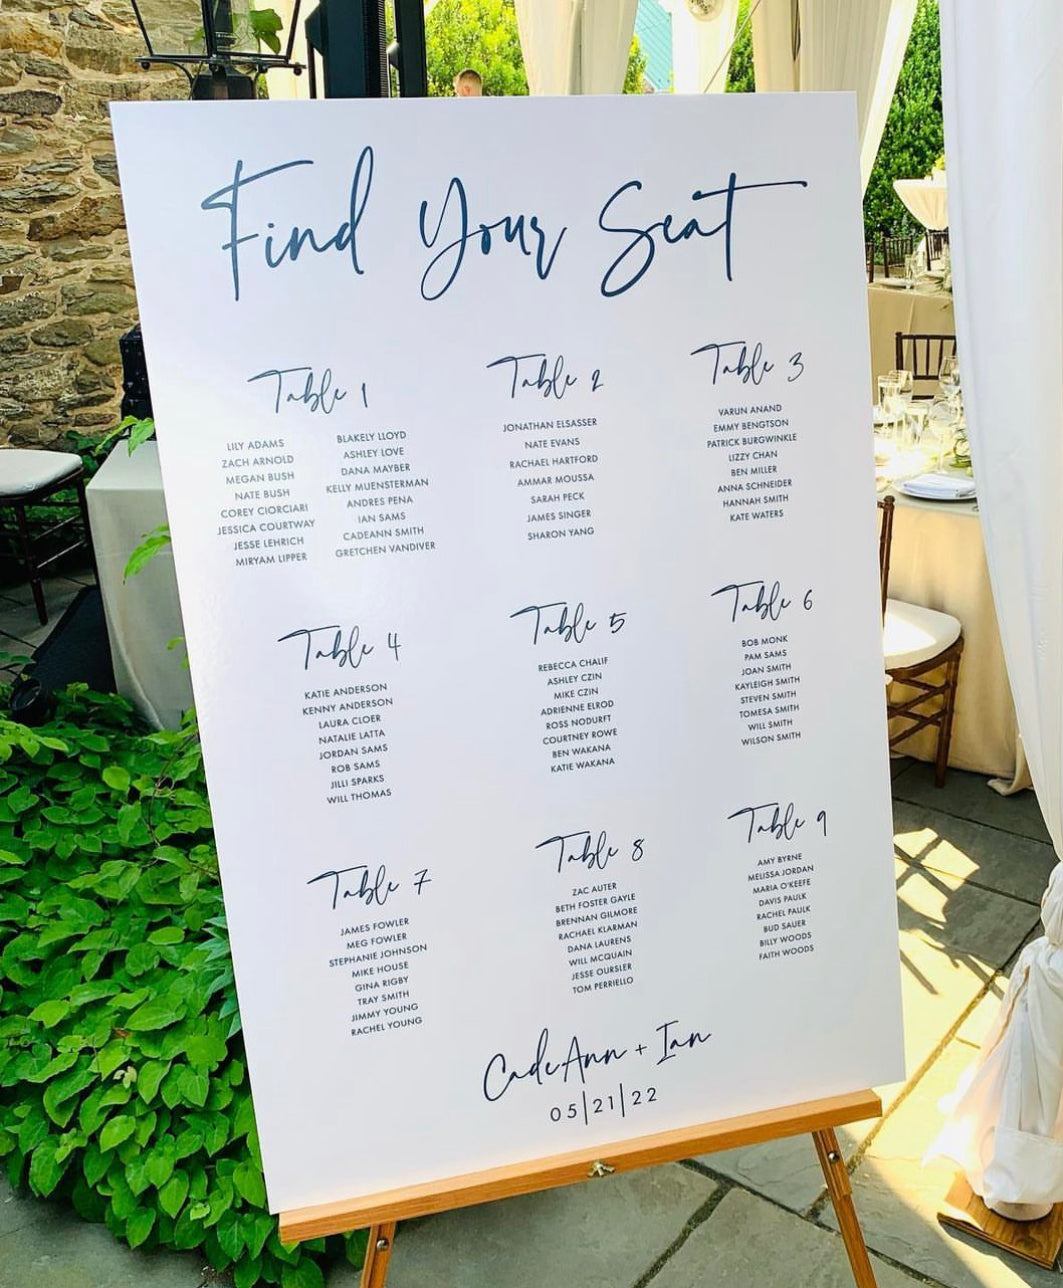 Find Your Seat
Table 1
LILY ADAMS
ZACH ARNOLD
MEGAN BUSH
NATE BUSH
COREY CIORCIARI
JESSICA COURTWAY
JESSE LEHRICH
MIRYAM LIPPER
BLAKELY LLOYD
ASHLEY LOVE
DANA MAYBER
KELLY MUENSTERMAN
ANDRES PENA
IAN SAMS
CADEANN SMITH
GRETCHEN VANDIVER
Table 2
JONATHAN ELSASSER
NATE EVANS
RACHAEL HARTFORD
AMMAR MOUSSA
SARAH PECK
JAMES SINGER
SHARON YANG
Table 3
VARUN ANAND
EMMY BENGTSON
PATRICK BURGWINKLE
LIZZY CHAN
BEN MILLER
ANNA SCHNEIDER
HANNAH SMITH
KATE WATERS
Table 4
KATIE ANDERSON
KENNY ANDERSON
LAURA CLOER
NATALIE LATTA
JORDAN SAMS
ROB SAMS
JILLI SPARKS
WILL THOMAS
Table 5
REBECCA CHALIF
ASHLEY CZIN
MIKE CZIN
ADRIENNE ELROD
ROSS NODURFT
COURTNEY ROWE
BEN WAKANA
KATIE WAKANA
Table 6
BOB MONK
PAM SAMS
JOAN SMITH
KAYLEIGH SMITH
STEVEN SMITH
TOMESA SMITH
WILL SMITH
WILSON SMITH
Table 7
JAMES FOWLER
MEG FOWLER
STEPHANIE JOHNSON
MIKE HOUSE
GINA RIGBY
TRAY SMITH
JIMMY YOUNG
RACHEL YOUNG
Table 8
ZAC AUTER
BETH FOSTER GAYLE
BRENNAN GILMORE
RACHAEL KLARMAN
DANA LAURENS
WILL MCQUAIN
JESSE OURSLER
TOM PERRIELLO
Table 9
AMY BYRNE
MELISSA JORDAN
MARIA O'KEEFE
DAVIS PAULK
RACHEL PAULK
BUD SAUER
BILLY WOODS
FAITH WOODS
CadeAnn + Ian
05|21|22